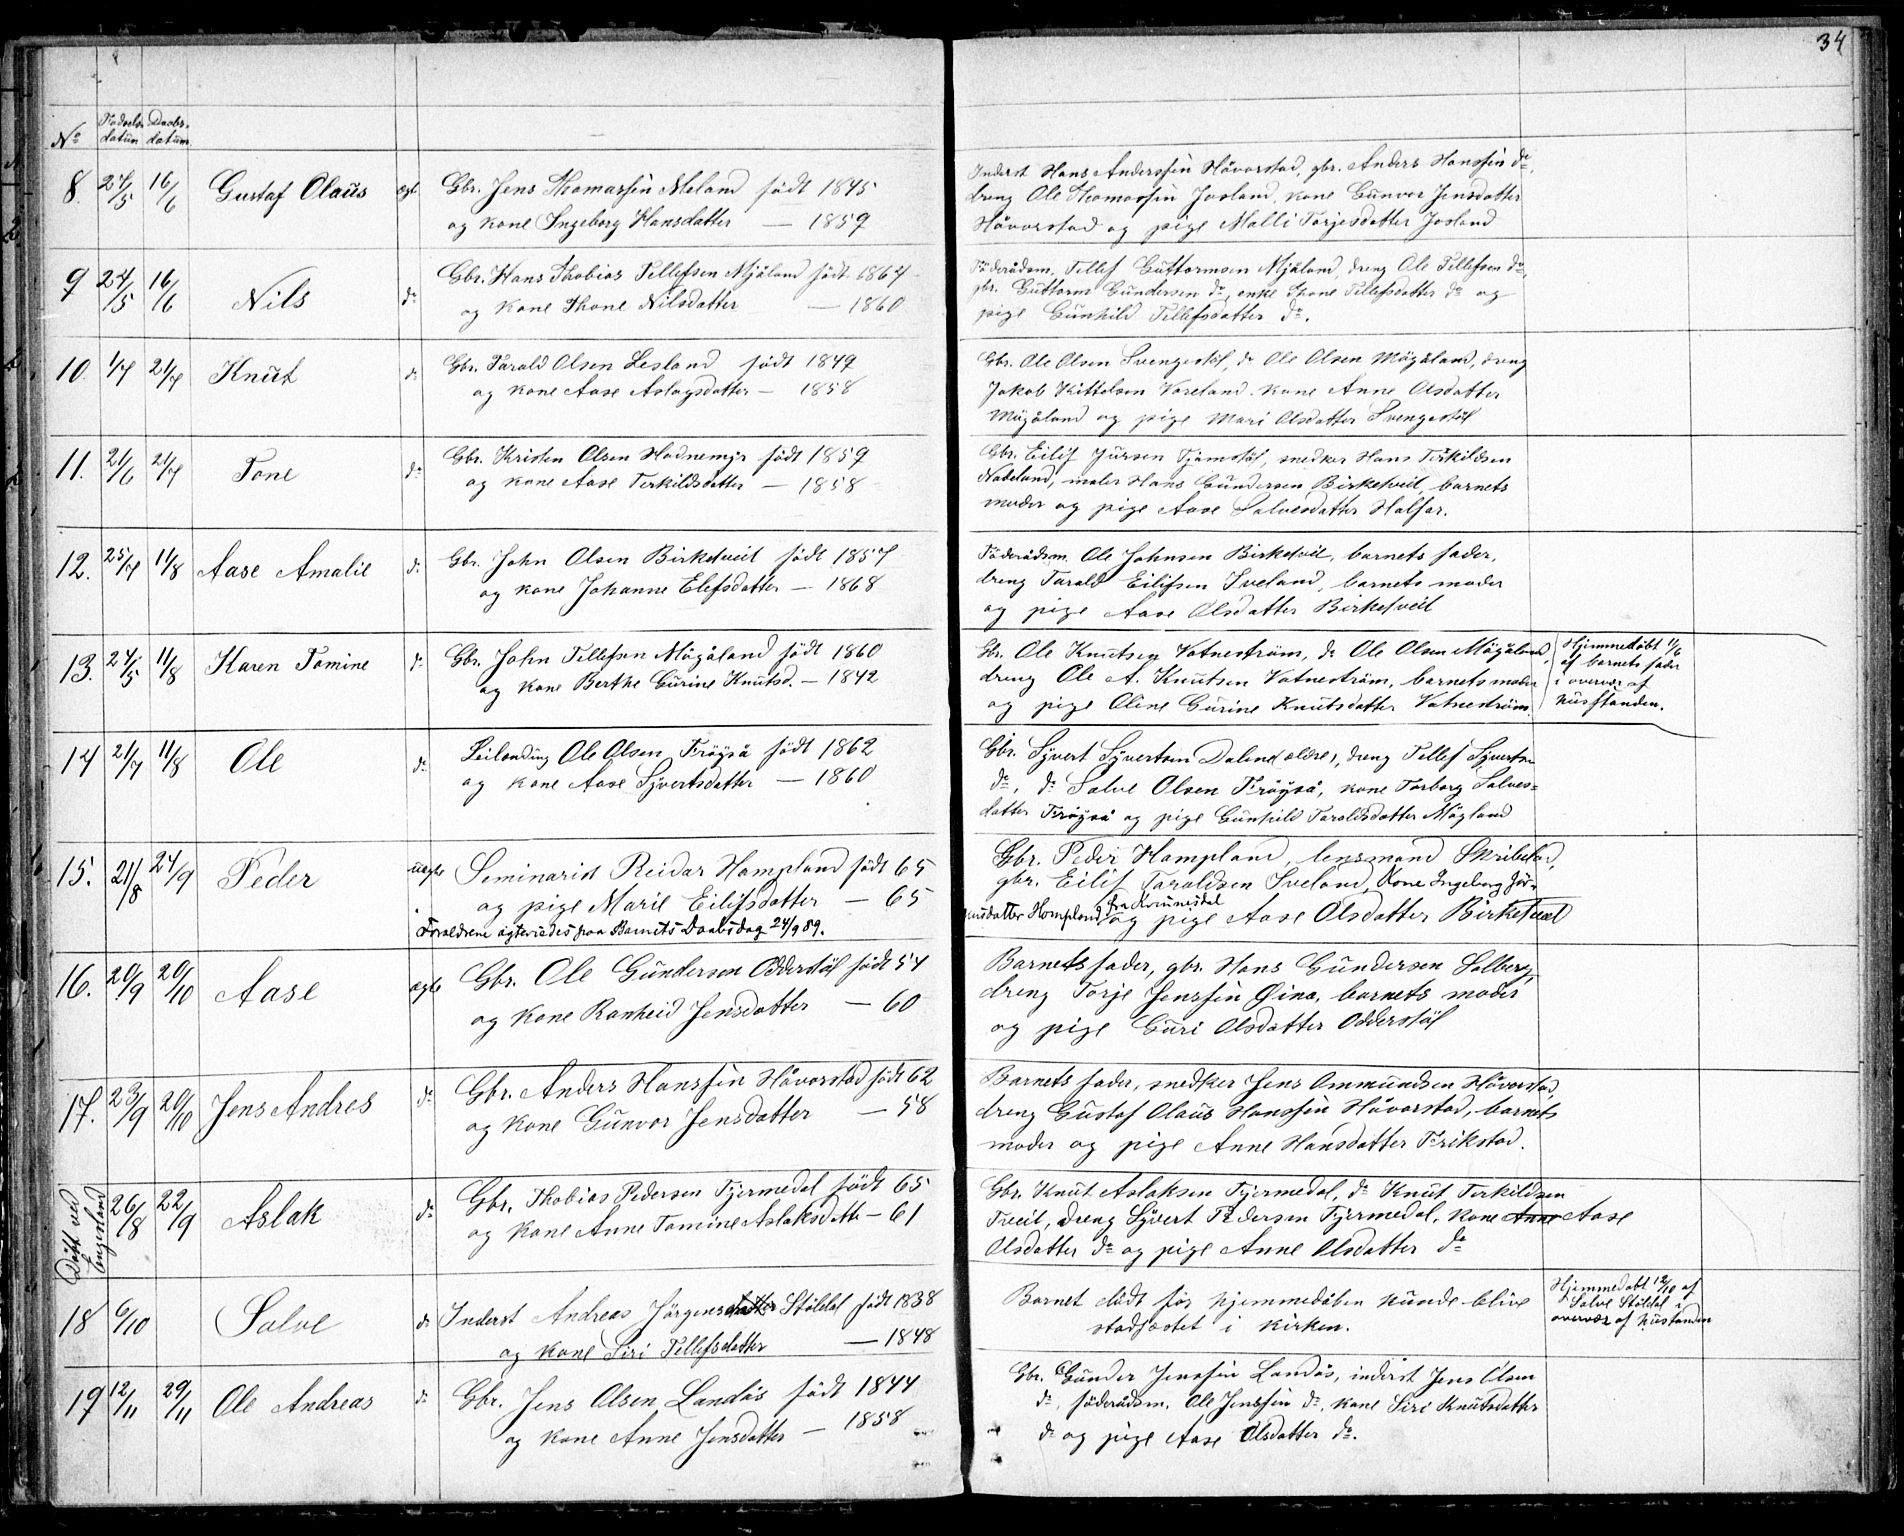 34
No Fødsels- Daabs-
datum datum.
8. 24/5 16/6 Gustaf Olaus ægt. Gbr. Jens Thomassen Meland født 1845
og kone Ingeborg Hansdatter — 1859
Inderst Hans Anderssen Håvorstad, gbr. Anders Hanssen do,
dreng Ole Thomassen Josland, kone Gunvor Jensdatter
Håvorstad og pige Malli Torjesdatter Josland
9 24/5 16/6 Nils do Gbr. Hans Thobias Tellefsen Mjåland født 1864
og kone Thone Nilsdatter — 1860
Föderådsm. Tellef Guttormsen Mjåland, dreng Ole Tellefsen do,
gbr. Guttorm Gundersen do, enke Thone Tellefsdatter do og
pige Gunhild Tellefsdatter do.
10. 1/7 21/7 Knut do Gbr. Tarald Olsen Lesland født 1849
og kone Aase Aslagsdatter — 1858
Gbr. Ole Olsen Svengestöl, do Ole Olsen Mögåland, dreng
Jakob Kittelsen Væreland, kone Anne Olsdatter
Mögåland og pige Mari Olsdatter Svengestöl
11. 21/6 21/7 Tone do Gbr. Kristen Olsen Hodnemyr født 1859
og kone Aase Terkildsdatter — 1858
Gbr. Eilif Jursen Tjomstöl, snedker Hans Terkildsen
Nateland, maler Hans Gundersen Birketveit, barnets
moder og pige Aase Salvesdatter Halsar.
12. 25/7 11/8 Aase Amalie do Gbr. John Olsen Birketveit født 1857
og kone Johanne Elefsdatter — 1868
Föderådsm. Ole Johnsen Birketveit, barnets fader,
dreng Tarald Eilifsen Iveland, barnets moder
og pige Aase Olsdatter Birketveit
13. 24/5 11/8 Karen Tomine do Gbr. John Tellefsen Mögåland født 1860
og kone Berthe Gurine Knutsd. — 1842
Gbr. Ole Knutsen Vatneström, do Ole Olsen Mögåland,
dreng Ole A. Knutsen Vatneström, barnets moder
og pige Oline Gurine Knutsdatter Vatneström.
Hjemmedöbt 11/6
af barnets fader
i overvær af
husstanden.
14 21/7 11/8 Ole do Leilending Ole Olsen Fröyså født 1862
og kone Aase Syvertsdatter — 1860
Gbr. Syvert Syvertsen Dalene ældre, dreng Tellef Syvertsen
do, do Salve Olsen Fröyså, kone Torborg Salves=
datter Fröyså og pige Gunhild Taraldsdatter Mögland
15. 21/8 24/9 Peder uægte Seminarist Reidar Hompland født 65
og pige Marie Eilifsdatter — 65
Forældrene ægteviedes paa Barnets Daabsdag 24/9 89.
Gbr. Peder Hompland, lensmand Skribeland,
gbr. Eilif Taraldsen Iveland, Kone Ingeborg Jör-
gensdatter Hompland fra Kvinnesdal og pige Aase Olsdatter Birketveit
16. 20/9 20/10 Aase ægte Gbr. Ole Gundersen Odderstöl født 54
og kone Ranheid Jensdatter — 60
Barnets fader, gbr. Hans Gundersen Solberg,
dreng Torje Jenssen Öina, barnets moder
og pige Guri Olsdatter Odderstöl
17. 23/9 20/10 Jens Andres do Gbr. Anders Hanssen Håvorstad født 62
og kone Gunvor Jensdatter — 58
Barnets fader, snedker Jens Ommundsen Håvorstad,
dreng Gustaf Olaus Hanssen Håvorstad, barnets
moder og pige Anne Hansdatter Frikstad.
Döbt ved Engesland 26/8 22/9 Aslak do Gbr. Thobias Pedersen Tjermedal født 65
og kone Anne Tomine Aslaksdatter — 61
Gbr. Knut Aslaksen Tjermedal, do Knut Terkildsen
Tveit, dreng Syvert Pedersen Tjermedal, kone Anne Aase
Olsdatter do og pige Anne Olsdatter do
18 6/10 Salve do Inderst Andreas Jörgens Ståldal født 1838
og kone Siri Tellefsdatter — 1848
Barnet dödt før hjemmedåben kunde blive
stadfæstet i kirken.
Hjemmedöbt 12/10 af
Salve Ståldal i
overvær af husstanden
19 12/11 29/11 Ole Andreas do Gbr. Jens Olsen Landås født 1844
og kone Anne Jensdatter — 1858
Gbr. Gunder Jenssen Landås, inderst Jens Olsen
do, föderådsm. Ole Jenssen do, kone Siri Knutsdatter
do og pige Aase Olsdatter do.